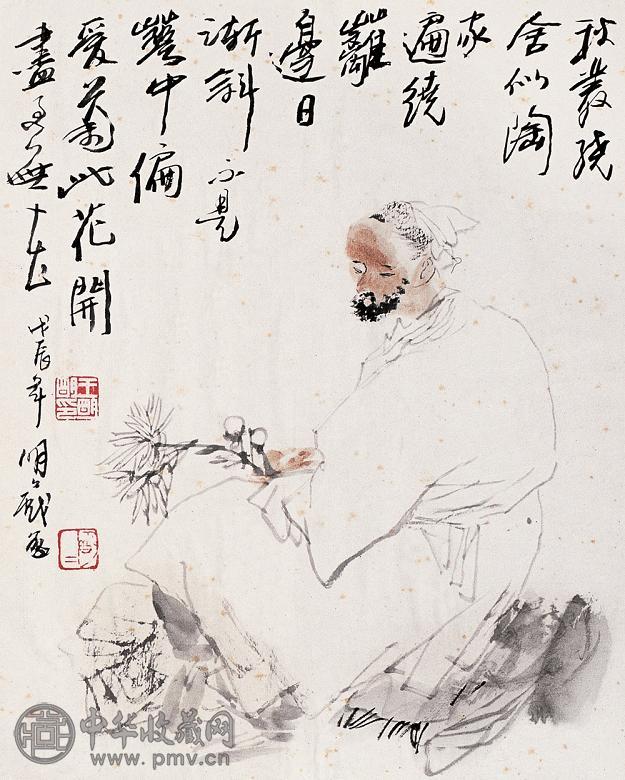 秋叢繞
舍似陶
家
遍繞
籬
邊日
漸斜 不是
中偏
愛菊此花開
盡更無花
戊辰年 明明戲
王明明印
中华收藏网
www.pmv.cn